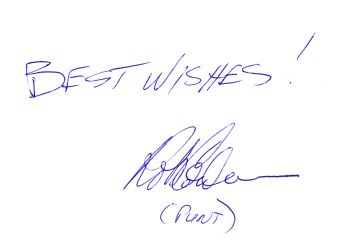 BEST WISHES!
(PUNT)